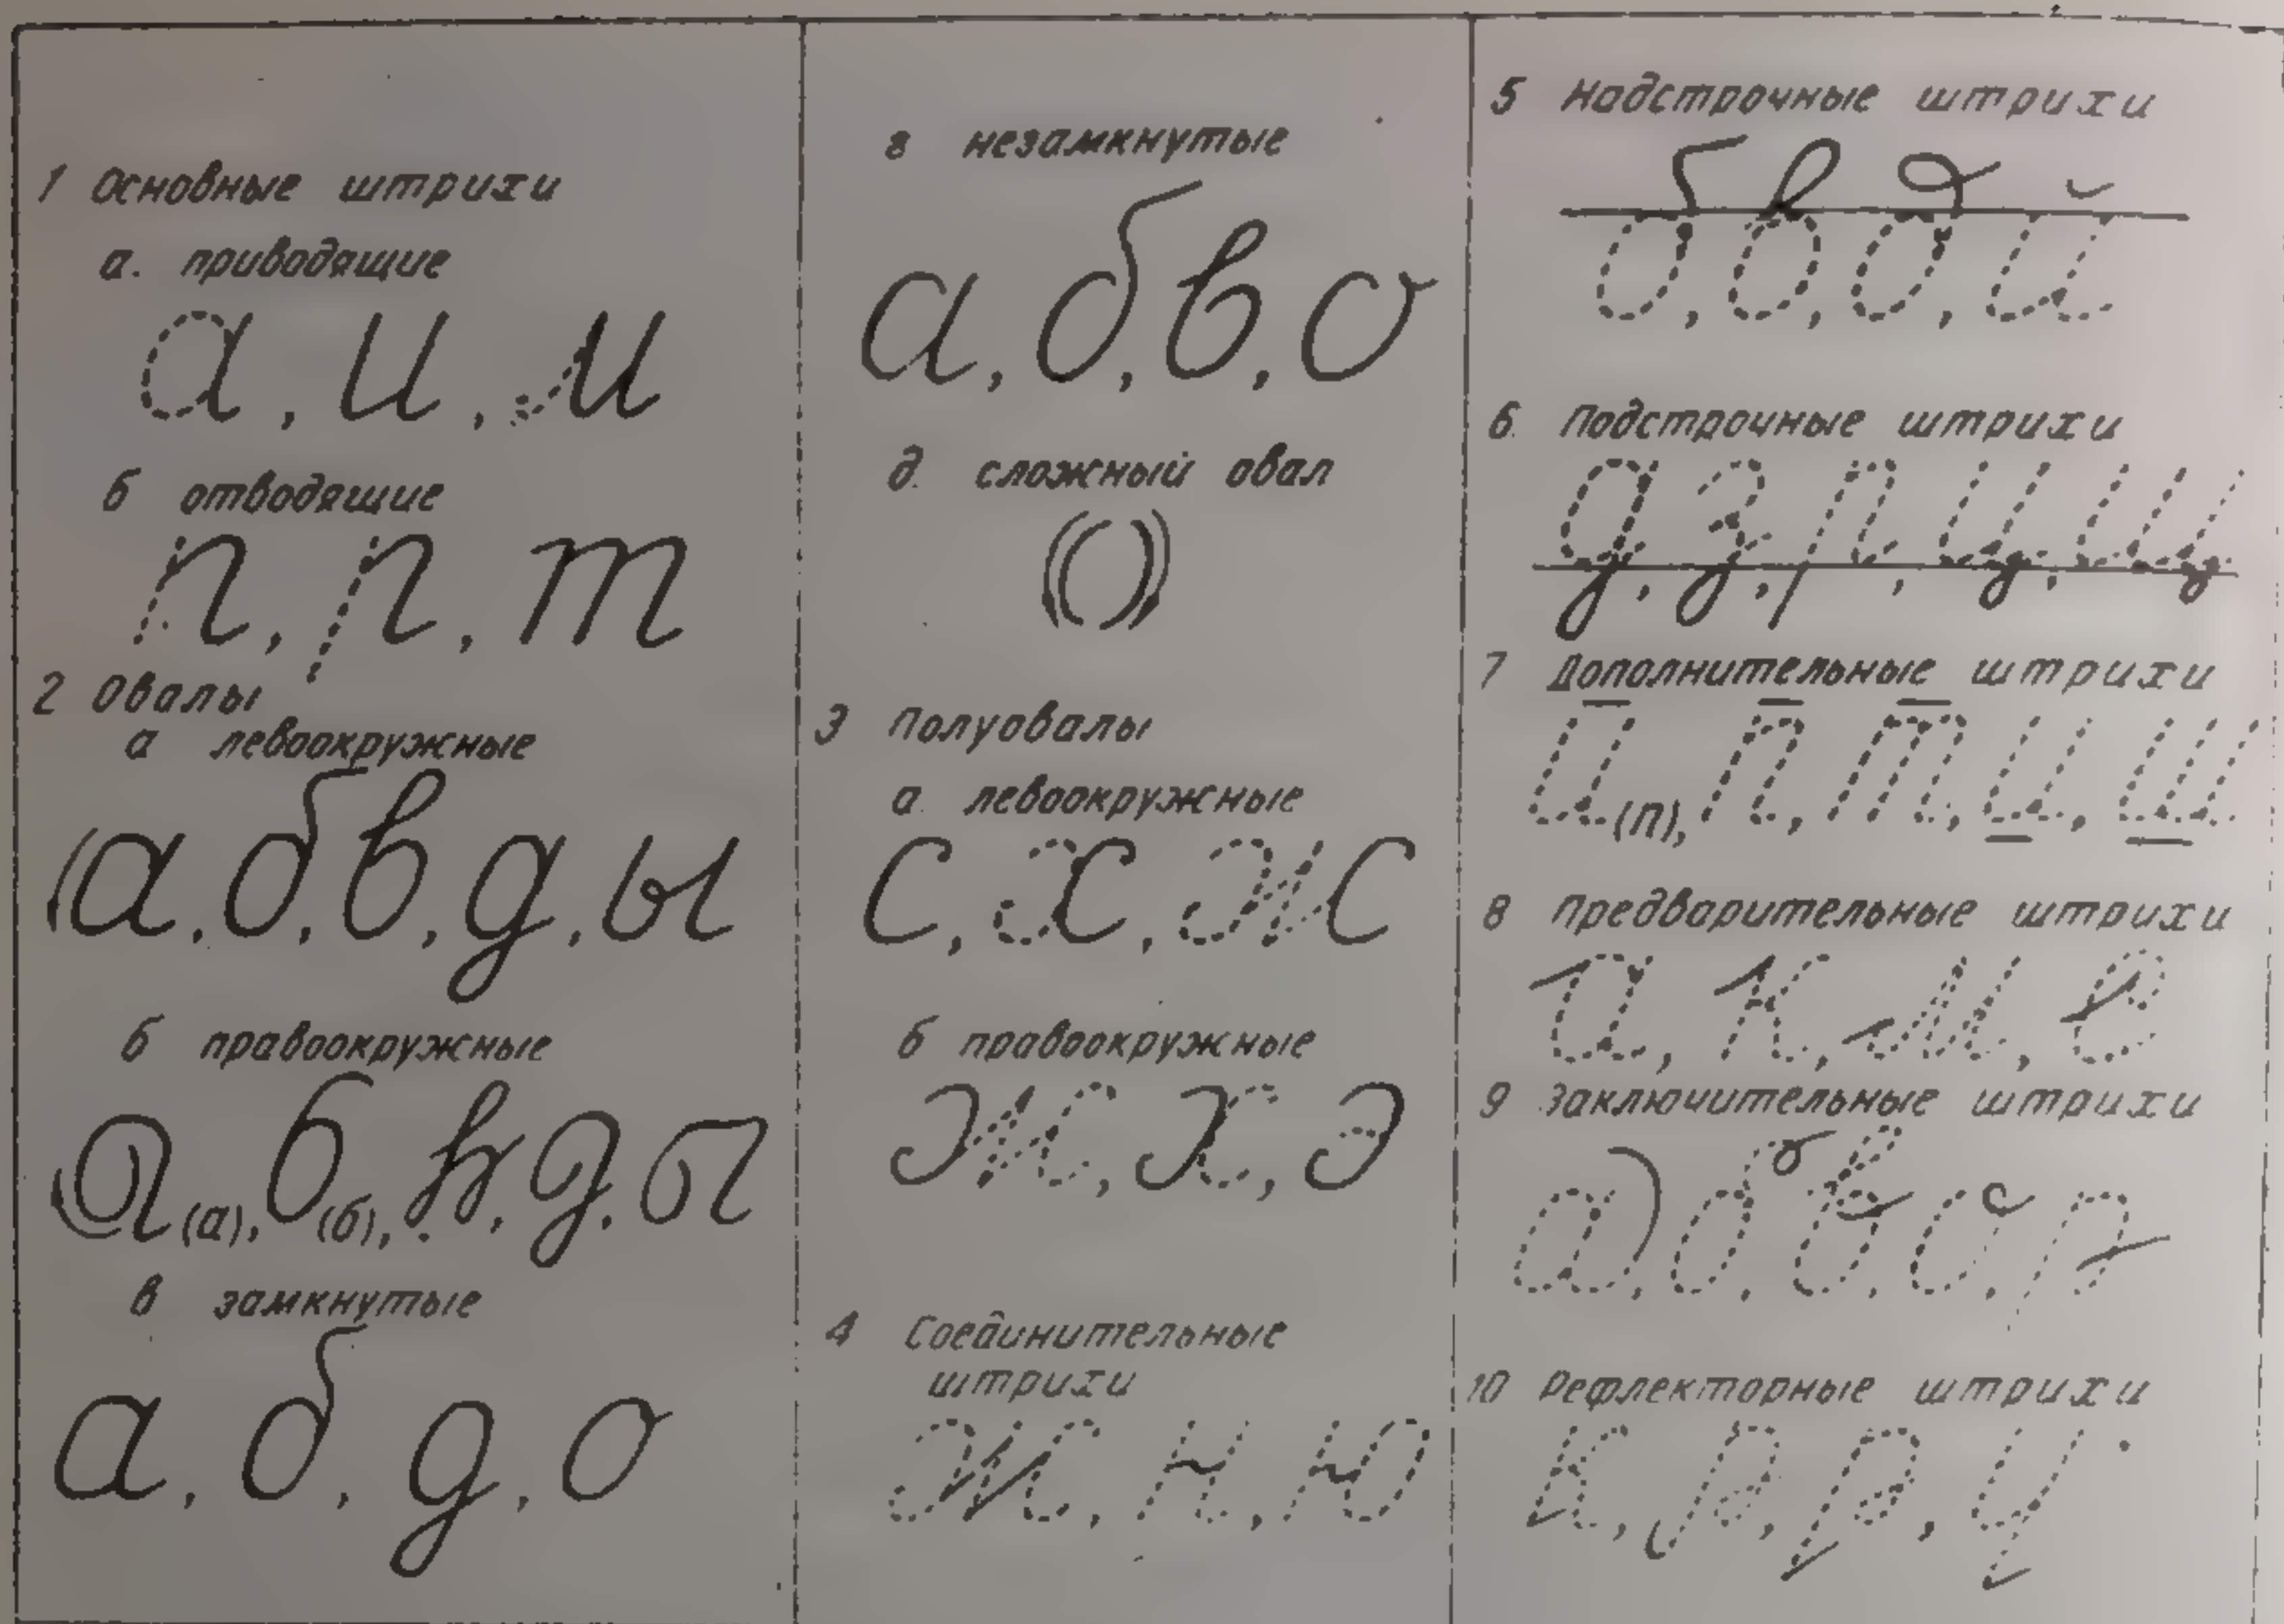 1 Основные штрихи
а. приводящие
а, и, м
б отводящие
п, р, т
2 Овалы
а левоокружные
а, б, в, д, ы
б правоокружные
а (а), б (б), в, д, ы
в замкнутые
а, б, д, о
г незамкнутые
а, б, в, о
д. сложный овал
3 Полуовалы
а левоокружные
с, х, ж
б правоокружные
ж, х, э
4 Соединительные
штрихи
ж, н, ю
5 Надстрочные штрихи
б, в, д, й
6. Подстрочные штрихи
д, з, р, ц, щ
7 Дополнительные штрихи
и (п), п, т, и, ш
8 Предварительные штрихи
а, к, м, е
9 Заключительные штрихи
а, б, в, с, р
10 Рефлекторные штрихи
к, р, р, у